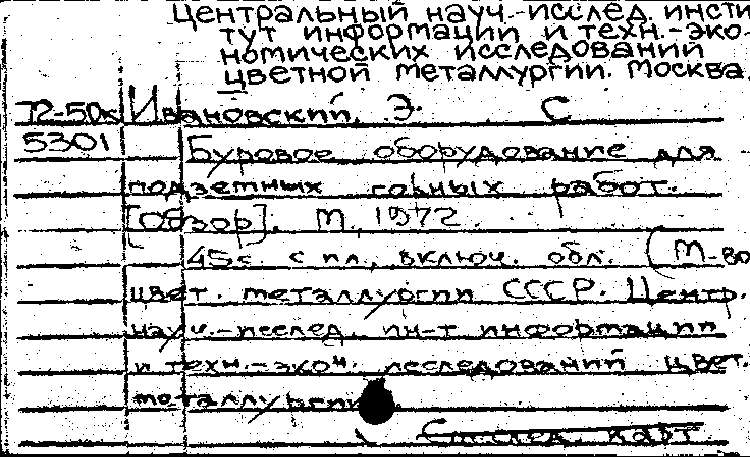 Центральный науч.-исслед. инсти
тут информации и техн.-эко-
номических исследований
цветной металлургии. Москва.
72-50к Ивановский, Э. С
5301
Буровое оборудование для
подземных горных работ.
[Обзор]. М, 1972.
45с. с ил, включ. обл. (М-во
цвет. металлургии СССР. Центр.
науч.-исслед. ин-т информации
и техн.-экон. исследований цвет.
металлургии
См. след. карт